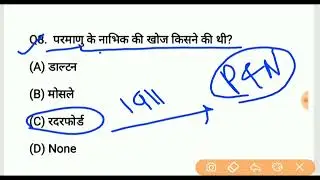 Q8. परमाणु के नाभिक की खोज किसने की थी?
(A) डाल्टन
(B) मोसले
(C) रदरफोर्ड
(D) None
1911
P&N